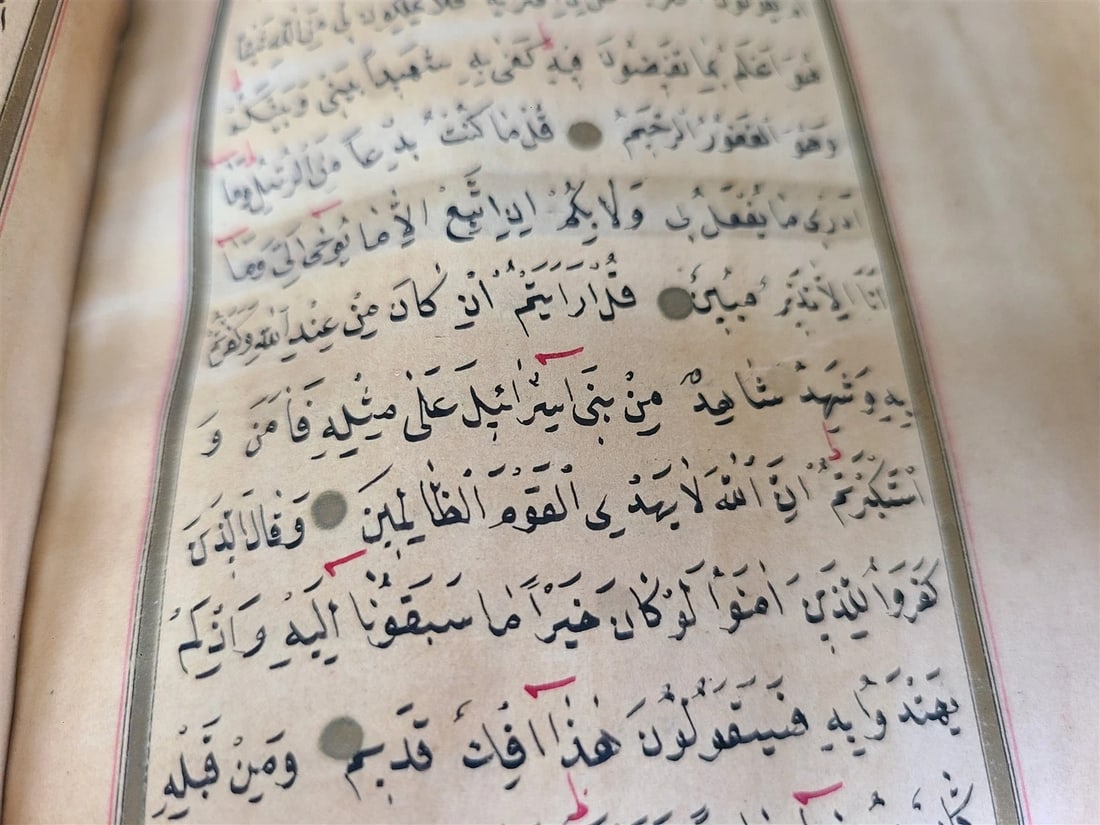 فلا تملكون لي من الله شيئا
هُوَ اَعْلَمُ بِمَا تُفٖيضُونَ فٖيهِ كَفٰى بِهٖ شَهٖيداً بَيْنٖى وَبَيْنَكُمْ
وَهُوَ الْغَفُورُ الرَّحٖيمُ قُلْ مَا كُنْتُ بِدْعاً مِنَ الرُّسُلِ وَمَا
اَدْرٖى مَا يُفْعَلُ بٖى وَلَا بِكُمْ اِنْ اَتَّبِعُ اِلَّا مَا يُوحٰى اِلَىَّ وَمَا
اَنَا اِلَّا نَذٖيرٌ مُبٖينٌ قُلْ اَرَاَيْتُمْ اِنْ كَانَ مِنْ عِنْدِ اللّٰهِ وَكَفَرْتُمْ
بِهٖ وَشَهِدَ شَاهِدٌ مِنْ بَنٖى اِسْرَائٖيلَ عَلٰى مِثْلِهٖ فَاٰمَنَ وَ
اسْتَكْبَرْتُمْ اِنَّ اللّٰهَ لَا يَهْدِى الْقَوْمَ الظَّالِمٖينَ وَقَالَ الَّذٖينَ
كَفَرُوا لِلَّذٖينَ اٰمَنُوا لَوْ كَانَ خَيْراً مَا سَبَقُونَا اِلَيْهِ وَاِذْ لَمْ
يَهْتَدُوا بِهٖ فَسَيَقُولُونَ هٰذَا اِفْكٌ قَدٖيمٌ وَمِنْ قَبْلِهٖ